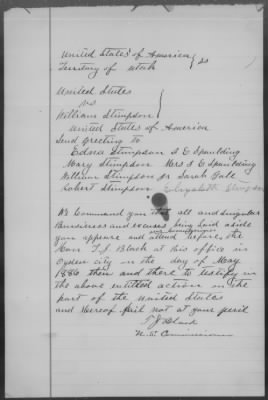 United States of America } ss
Territory of Utah
United States
vs
William Stimpson
United States of America
Send Greeting to
Edna Stimpson S G Spaulding
Mary Stimpson Mrs S G Spaulding
William Stimpson Jr Sarah Gale
Robert Stimpson Elizabeth Stimpson
We Command you that all and singular
Bussiness and excuses being laid aside
you appear and attend before the
Hon. T J Black at his office in
Ogden city on the day of May
1886 then and there to testify in
the above entitled action on the
part of the United States
and Hereof fail not at your peril
T J Black
U. S. Commissioner